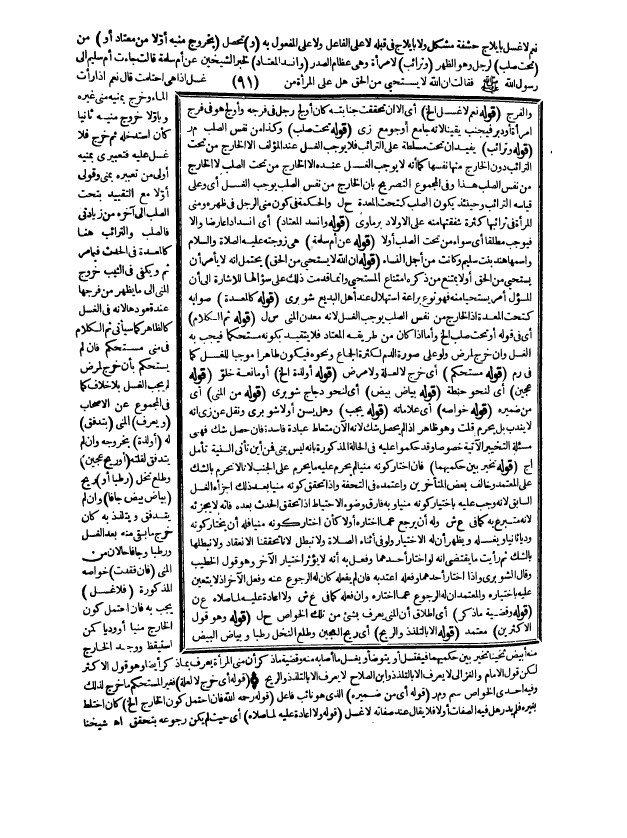 نعم لا غسل بايلاج حشفة مشكل ولا بايلاج فى قبله لا على الفاعل ولا على المفعول به (و) تحصل (بخروج منيه أولا من معتاد أو) من
(تحت صلب) لرجل وهو الظهر (وترائب) لامرأة وهى عظام الصدر (وانسد المعتاد) لخبر الشيخين عن أم سلمة قالت جاءت أم سليم الى
رسول الله ﷺ فقالت ان الله لا يستحيى من الحق هل على المرأة من (٩١) غسل اذا هى احتلمت قال نعم اذا رأت
الماء وخرج بمنيه منى غيره
وبأولا خروج منيه ثانيا
كأن استدخله ثم خرج فلا
غسل عليه فتعبيرى بمنيه
أولى من تعبيره بمنى وقولى
أولا مع التقييد بتحت
الصلب الى آخره من زيادتى
فالصلب والترائب هنا
كالمعدة فى الحدث فيما مر
ثم ويكفى فى الثيب خروج
المنى الى ما يظهر من فرجها
عند قعودها لانه فى الغسل
كالظاهر كما سيأتى ثم الكلام
فى منى مستحكم فان لم
يستحكم بأن خرج لمرض
لم يجب الغسل بلا خلاف كما
فى المجموع عن الاصحاب
(ويعرف) المنى (بتدفق)
له (أولذة) بخروجه وان لم
يتدفق لقلته (أو ريح عجين)
وطلع نخل (رطبا أو) ريح
(بياض بيض جافا) وان لم
يتدفق ويتلذذ به كان
خرج ما بقى منه بعد الغسل
ورطبا وجافا حالان من
المنى (فان فقدت) خواصه
المذكورة (فلا غسل)
يجب به فان احتمل كون
الخارج منيا أو وديا كمن
استيقظ ووجد الخارج
والفرج (قوله نعم لا غسل الخ) أى الا ان تحققت جنابته كان أولج رجل فى فرجه وأولج هو فى فرج
امرأة أو دبر فيجنب يقينا لانه جامع أو جومع زى (قوله تحت صلب) وكذا من نفس الصلب م ر
(قوله وترائب) يفيد ان تحت مسلطة على الترائب فلا يوجب الغسل عند المؤلف الا الخارج من تحت
الترائب دون الخارج منها نفسها كما أنه لا يوجب الغسل عنده الا الخارج من تحت الصلب لا الخارج
من نفس الصلب هذا وفى المجموع التصريح بان الخارج من نفس الصلب يوجب الغسل أى وعلى
قياسه الترائب وحينئذ يكون الصلب كتحت المعدة حل والحكمة فى كون منى الرجل فى ظهره ومنى
المرأة فى ترائبها كثرة شفقتها منه على الاولاد برماوى (قوله وانسد المعتاد) أى انسدادا عارضا والا
فيوجب مطلقا أى سواء من تحت الصلب أولا (قوله عن أم سلمة) هى زوجته عليه الصلاة والسلام
واسمها هند بنت سليم وكانت من أجمل النساء (قوله ان الله لا يستحيى من الحق) يحتمل انه لا يأمر أن
يستحيى من الحق أولا يمتنع من ذكره امتناع المستحيى وانما قدمت ذلك على سؤالها للاشارة الى أن
المسؤل أمر يستحيا منه فهو نوع براعة استهلال عند أهل البديع شوبرى (قوله كالمعدة) صوابه
كتحت المعدة اذ الخارج من نفس الصلب يوجب الغسل لانه معدن المنى س ل (قوله ثم الكلام)
أى فى قوله أو تحت صلب الخ وأما اذا كان من طريقه المعتاد فلا يتقيد بكونه مستحكما فيجب به
الغسل وان خرج لمرض ولو على صورة الدم لكثرة الجماع ونحوه فيكون طاهرا موجبا للغسل كما
فى م ر (قوله مستحكم) أى خرج لا لعلة ولا مرض (قوله أو لذة الخ) أو مانعة خلو (قوله
عجين) أى لنحو حنطة (قوله بياض بيض) أى لنحو دجاج شوبرى (قوله من المنى) أى
من ضميره (قوله خواصه) أى علاماته (قوله يجب) وهل يسن أولا شوبرى ونقل عن زى انه
لا يندب بل يحرم قلت وهو ظاهر اذ لم يحصل شك لانه الآن متعاط عبادة فاسدة فان حصل شك فهى
مسئلة التخيير الآتية خصوصا وقد حكموا عليه فى الحالة المذكورة بانه ليس بمنى فمن أين تأتى السنية تأمل
اج (قوله تخير بين حكميهما) فان اختار كونه منيا لم يحرم عليه ما يحرم على الجنب لانا لا نحرم بالشك
على المعتمد وخالف بعض المتأخرين واعتمده فى التحفة واذا تحقق كونه منيا بعد ذلك اجزأه الغسل
السابق لانه وجب عليه باختياره كونه منيا وبه فارق وضوء الاحتياط اذا تحقق الحدث بعده فانه لا يجزئه
لانه متبرع به كما فى ع ش وله أن يرجع عما اختاره أولا كأن اختار كونه منيا فله أن يختار كونه
وديا ثانيا ويغسله ويظهر أن له الاختيار ولو فى أثناء الصلاة ولا تبطل لانا تحققنا الانعقاد ولا نبطلها
بالشك ثم رأيت ما يقتضى انه لو اختار أحدهما وفعل به أنه لا يؤثر اختيار الآخر وهو قول الخطيب
وقال الشوبرى واذا اختار أحدهما وفعله اعتد به فان لم يفعله كان له الرجوع عنه وفعل الآخر اذ لا يتعين
عليه باختياره والمعتمد ان له الرجوع عما اختاره وان فعله كما فى ع ش ولا اعادة عليه لما صلاه ع ن
(قوله وقضية ما ذكر) أى اطلاق أن المنى يعرف بشئ من تلك الخواص حل (قوله وهو قول
الاكثرين) معتمد (قوله الا بالتلذذ والريح) أى ريح العجين وطلع النخل رطبا وبياض البيض
منه أبيض تخينا تخير بين حكميهما فيغتسل أو يتوضأ ويغسل ما أصابه منه وقضية ما ذكر أن منى المرأة يعرف بما ذكر أيضا وهو قول الاكثر
لكن قول الامام والغزالى لا يعرف الا بالتلذذ وابن الصلاح لا يعرف الا بالتلذذ والريح (قوله أى خرج لا لعلة) فغير المستحكم ما خرج لذلك
وفيه احدى الخواص سم وم ر (قوله أى من ضميره) الذى هو نائب فاعل (قوله رحمه الله فان احتمل كون الخارج الخ) كان اختلط
بغيره فلم يدر هل فيه الصفات أولا فلا يقال عند صفاته لا غسل (قوله ولا اعادة عليه لما صلاه) أى حيث لم يكن رجوعه بتحقق اه شيخنا